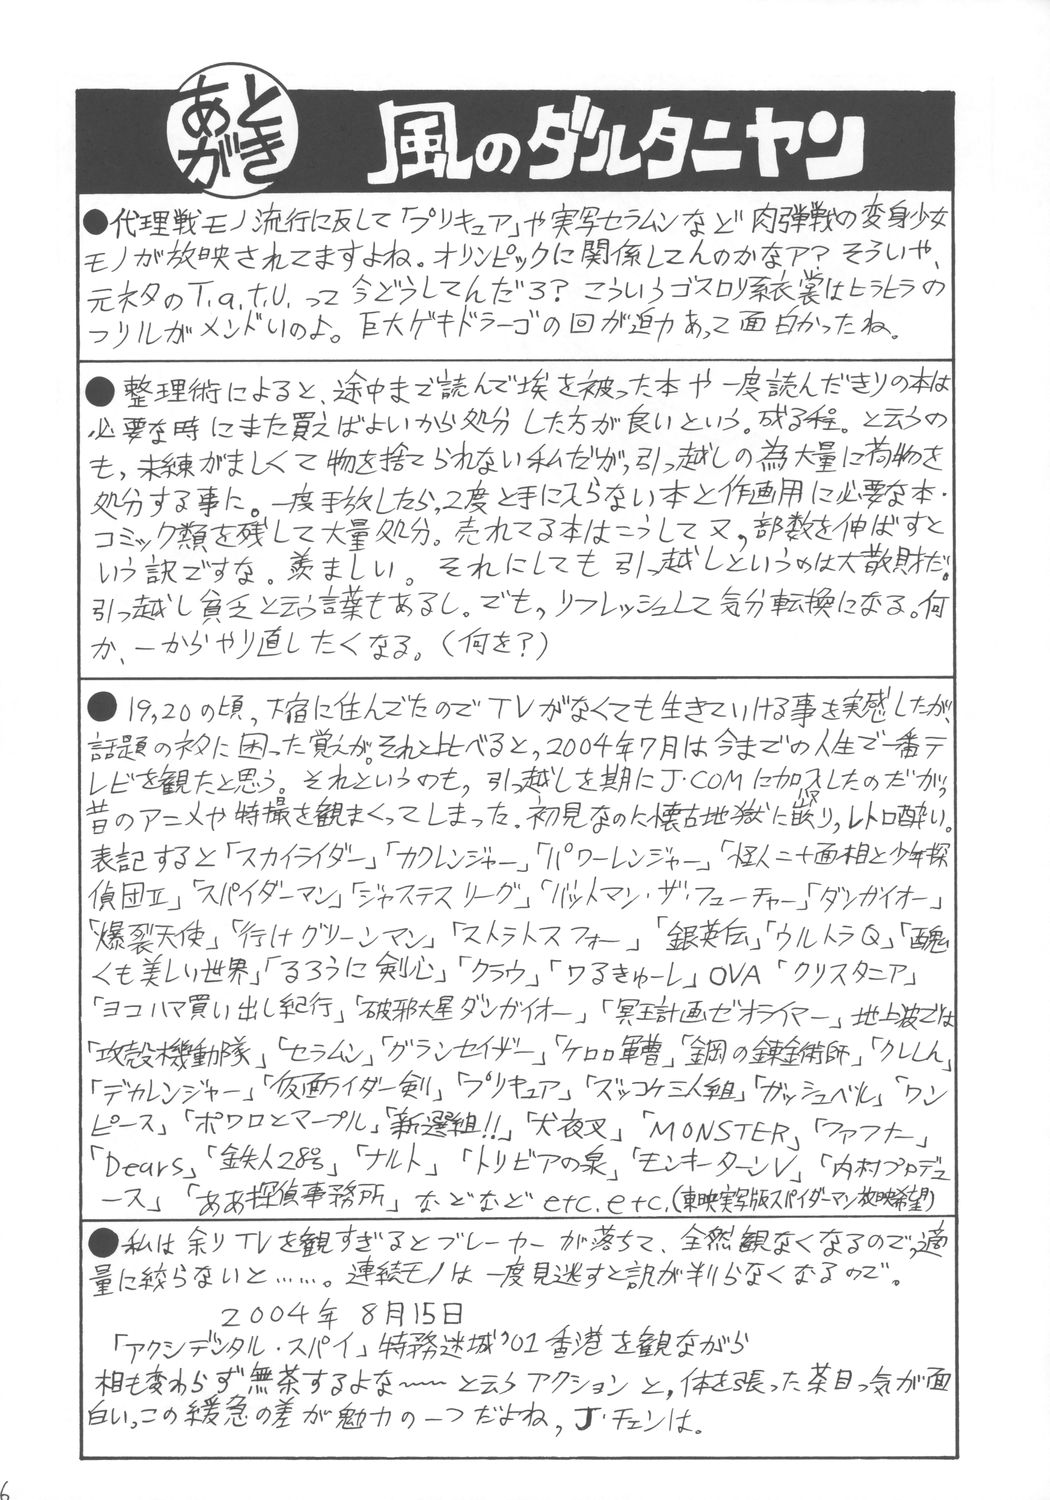 あとがき 風のダルタニヤン
●代理戦モノ流行に反して「プリキュア」や実写セラムンなど肉弾戦の変身少女
モノが放映されてますよね。オリンピックに関係してんのかなァ?そういや、
元ネタのT.a.t.U.って今どうしてんだろ?こういうゴスロリ系衣裳はヒラヒラの
フリルがメンドいのよ。巨大ゲキドラーゴの回が迫力あって面白かったね。
●整理術によると、途中まで読んで埃を被った本や一度読んだきりの本は
必要な時にまた買えばよいから処分した方が良いという。成る程。と云うの
も、未練がましくて物を捨てられない私だが、引っ越しの為大量に荷物を
処分する事に。一度手放したら、2度と手に入らない本と作画用に必要な本・
コミック類を残して大量処分。売れてる本はこうして又、部数を伸ばすと
いう訳ですな。羨ましい。それにしても引っ越しというのは大散財だ。
引っ越し貧乏と云う言葉もあるし。でも、リフレッシュして気分転換になる。何
か、一からやり直したくなる。(何を?)
●19,20の頃、下宿に住んでたのでTVがなくても生きていける事を実感したが、
話題のネタに困った覚えが。それと比べると、2004年7月は今までの人生で一番テ
レビを観たと思う。それというのも、引っ越しを期にJ・COMに加入したのだが、
昔のアニメや特撮を観まくってしまった。初見なのに懐古地獄に嵌り、レトロ酔い。
表記すると「スカイライダー」「カクレンジャー」「パワーレンジャー」「怪人二十面相と少年探
偵団Ⅱ」「スパイダーマン」「ジャステスリーグ」「バットマン・ザ・フューチャー」「ダンガイオー」
「爆裂天使」「行けグリーンマン」「ストラトスフォー」「銀英伝」「ウルトラQ」「醜
くも美しい世界」「るろうに剣心」「クラウ」「ワるきゅーレ」OVA「クリスタニア」
「ヨコハマ買い出し紀行」「破邪大星ダンガイオー」「冥王計画ゼオライマー」地上波では
「攻殻機動隊」「セラムン」「グランセイザー」「ケロロ軍曹」「鋼の錬金術師」「クレしん」
「デカレンジャー」「仮面ライダー剣」「プリキュア」「ズッコケ三人組」「ガッシュベル」「ワン
ピース」「ポワロとマープル」「新選組!!」「犬夜叉」「MONSTER」「ファフナー」
「Dears」「鉄人28号」「ナルト」「トリビアの泉」「モンキーターンV」「内村プロデュ
ース」「ああ探偵事務所」などなどetc.etc.(東映実写版スパイダーマン放映希望)
●私は余りTVを観すぎるとブレーカーが落ちて、全然観なくなるので、適
量に絞らないと……。連続モノは一度見逃すと訳が判らなくなるので。
2004年8月15日
「アクシデンタル・スパイ」特務迷城'01香港を観ながら
相も変わらず無茶するよな〜〜と云うアクションと、体を張った茶目っ気が面
白い、この緩急の差が魅力の一つだよね、J・チェンは。
6